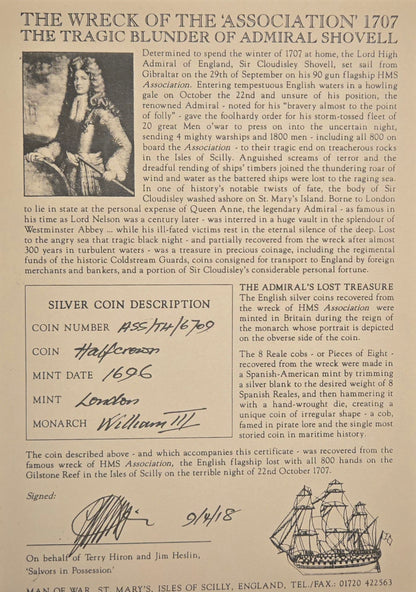 THE WRECK OF THE 'ASSOCIATION' 1707
THE TRAGIC BLUNDER OF ADMIRAL SHOVELL
Determined to spend the winter of 1707 at home, the Lord High
Admiral of England, Sir Cloudisley Shovell, set sail from
Gibraltar on the 29th of September on his 90 gun flagship HMS
Association. Entering tempestuous English waters in a howling
gale on October the 22nd and unsure of his position, the
renowned Admiral - noted for his "bravery almost to the point
of folly" - gave the foolhardy order for his storm-tossed fleet of
20 great Men o'war to press on into the uncertain night,
sending 4 mighty warships and 1800 men - including all 800 on
board the Association - to their tragic end on treacherous rocks
in the Isles of Scilly. Anguished screams of terror and the
dreadful rending of ships' timbers joined the thundering roar of
wind and water as the battered ships were lost to the raging sea.
In one of history's notable twists of fate, the body of Sir
Cloudisley washed ashore on St. Mary's Island. Borne to London
to lie in state at the personal expense of Queen Anne, the legendary Admiral - as famous in
his time as Lord Nelson was a century later - was interred in a huge vault in the splendour of
Westminster Abbey ... while his ill-fated victims rest in the eternal silence of the deep. Lost
to the angry sea that tragic black night - and partially recovered from the wreck after almost
300 years in turbulent waters - was a treasure in precious coinage, including the regimental
funds of the historic Coldstream Guards, coins consigned for transport to England by foreign
merchants and bankers, and a portion of Sir Cloudisley's considerable personal fortune.
SILVER COIN DESCRIPTION
COIN NUMBER ASS/TH/6709
COIN Halfcrown
MINT DATE 1696
MINT London
MONARCH William III
THE ADMIRAL'S LOST TREASURE
The English silver coins recovered from
the wreck of HMS Association were
minted in Britain during the reign of
the monarch whose portrait is depicted
on the obverse side of the coin.
The 8 Reale cobs - or Pieces of Eight -
recovered from the wreck were made in
a Spanish-American mint by trimming
a silver blank to the desired weight of 8
Spanish Reales, and then hammering it
with a hand-wrought die, creating a
unique coin of irregular shape - a cob,
famed in pirate lore and the single most
storied coin in maritime history.
The coin described above - and which accompanies this certificate - was recovered from the
famous wreck of HMS Association, the English flagship lost with all 800 hands on the
Gilstone Reef in the Isles of Scilly on the terrible night of 22nd October 1707.
Signed:
9/4/18
On behalf of Terry Hiron and Jim Heslin,
'Salvors in Possession'
MAN OF WAR, ST. MARY'S, ISLES OF SCILLY, ENGLAND, TEL./FAX.: 01720 422563